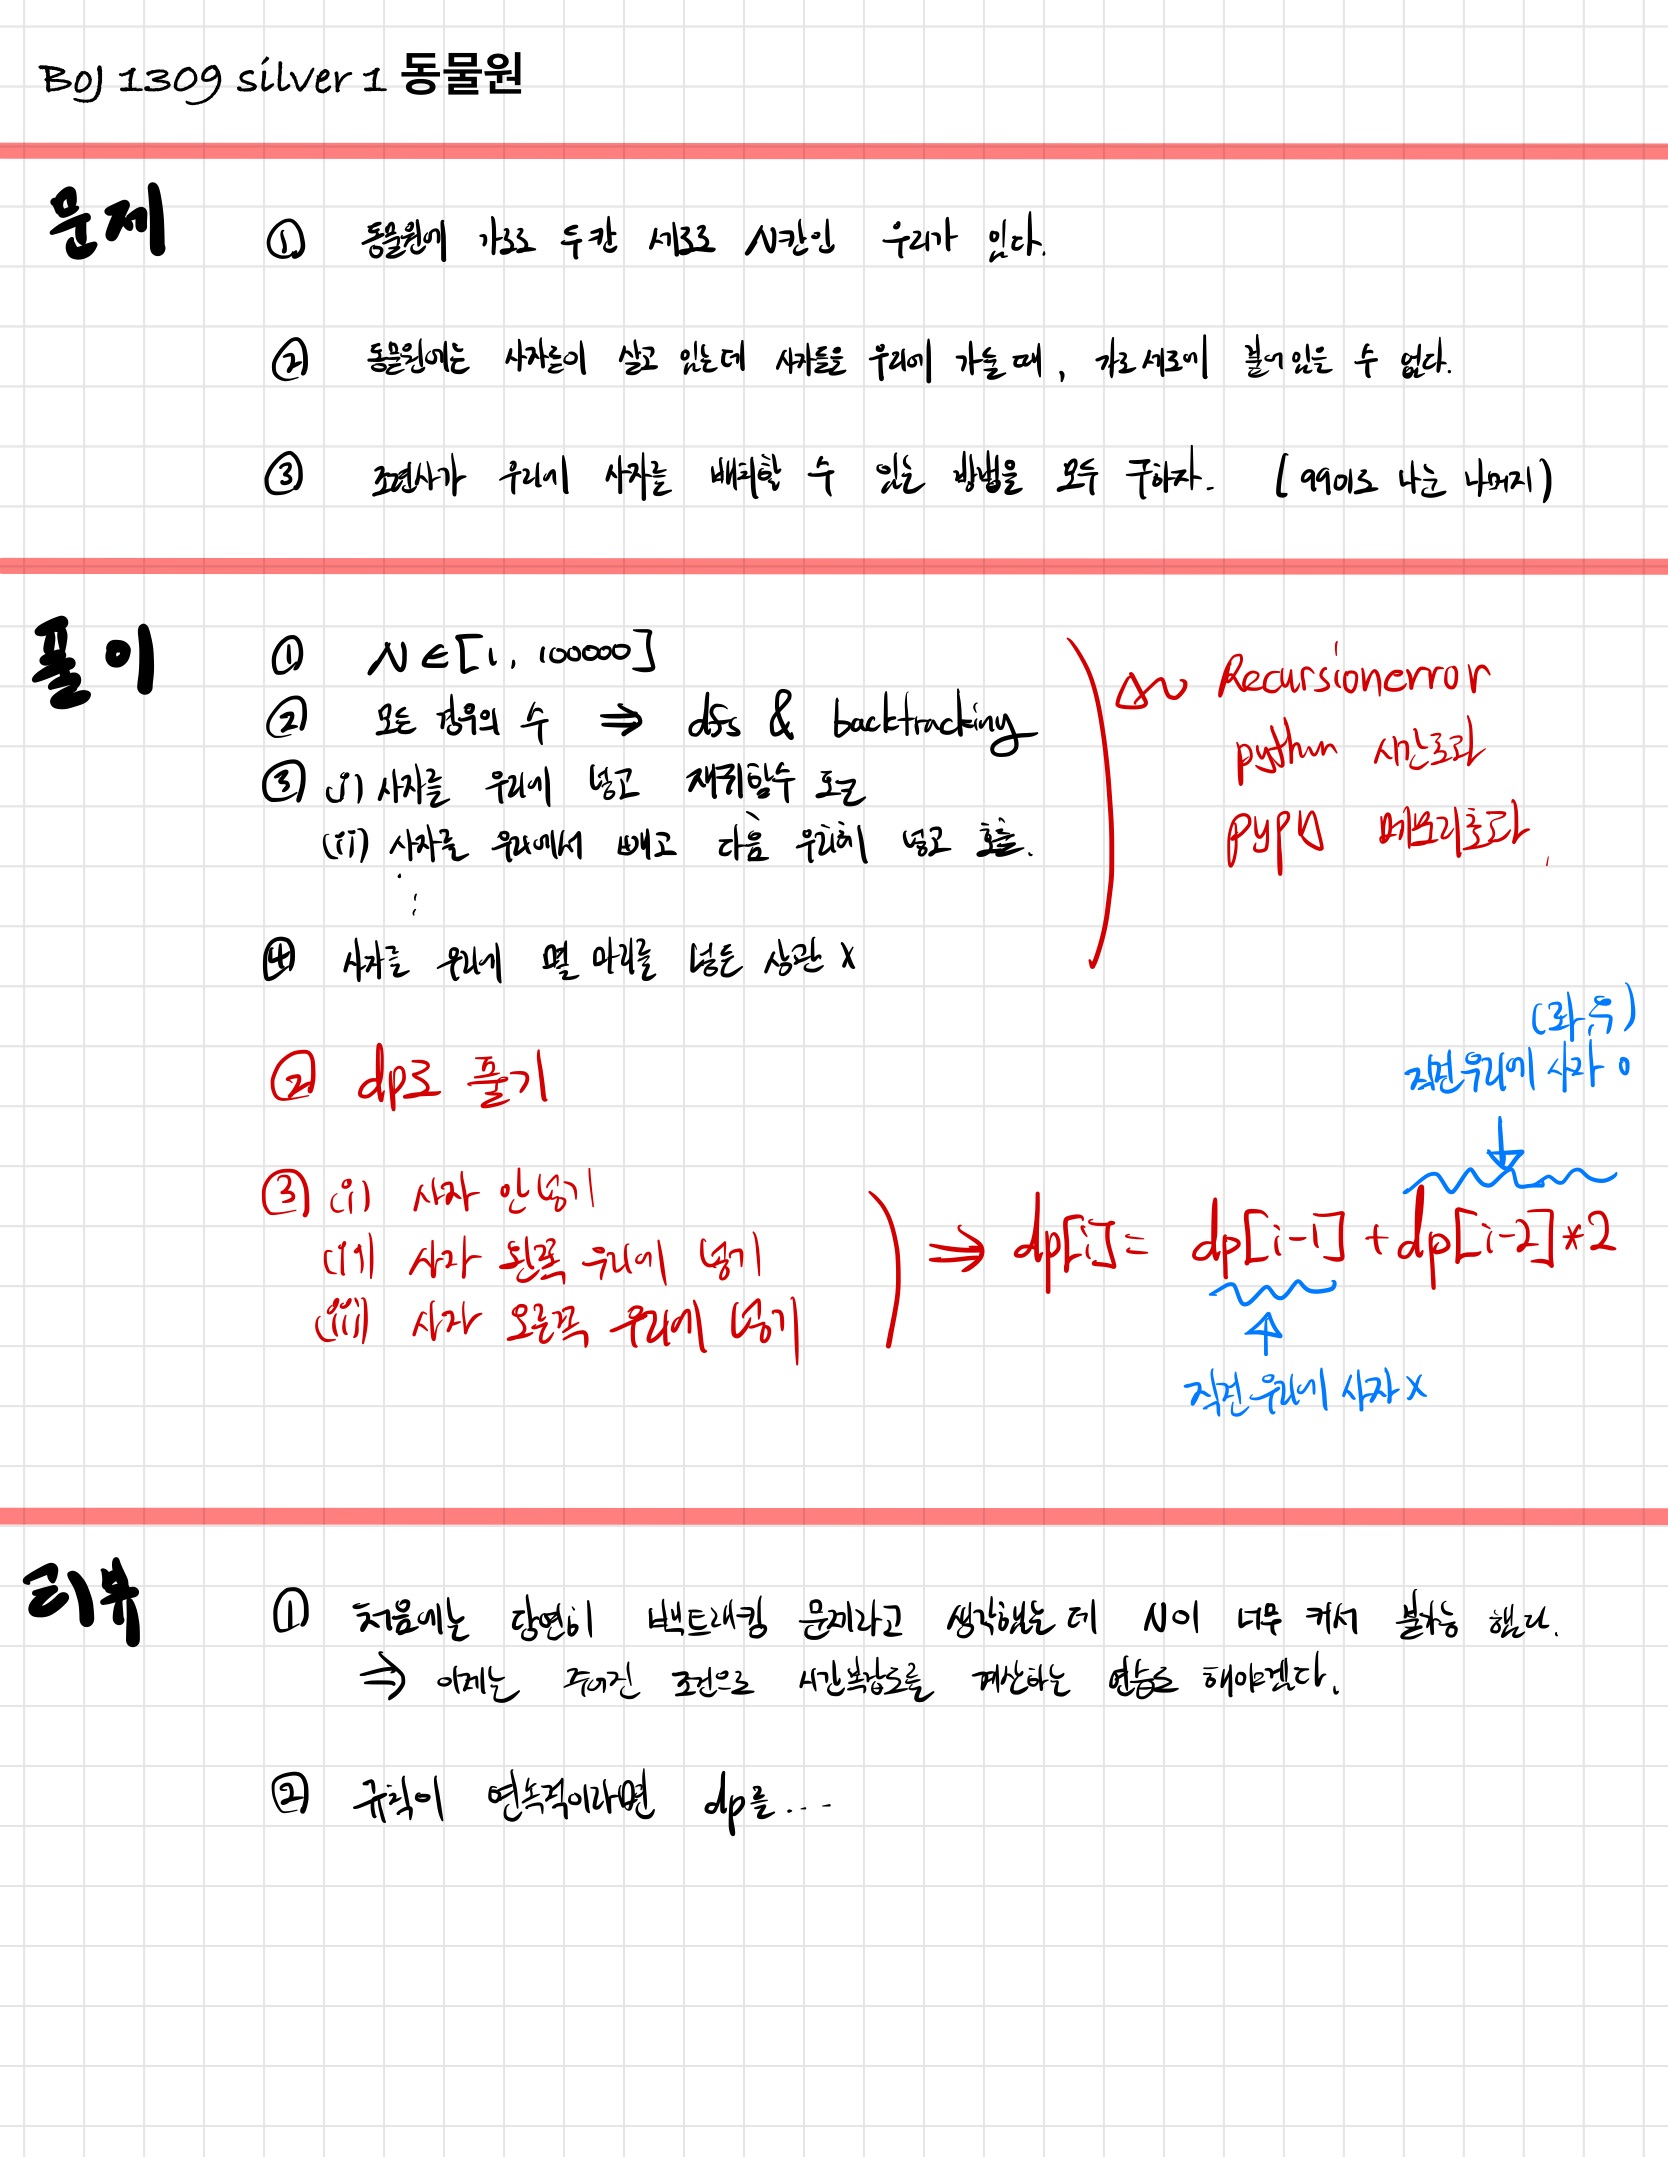 BOJ 1309 silver 1 동물원
문제
① 동물원에 가로로 두칸 세로로 N칸인 우리가 있다.
② 동물원에는 사자들이 살고 있는데 사자들을 우리에 가둘 때, 가로 세로에 붙어 있을 수 없다.
③ 조련사가 우리에 사자를 배치할 수 있는 방법을 모두 구하자. (9901로 나눈 나머지)
풀이
① N ∈ [1, 100000]
② 모든 경우의 수 ⇒ dfs & backtracking
③ (i) 사자를 우리에 넣고 재귀함수 호출
(ii) 사자를 우리에서 빼고 다음 우리에 넣고 호출.
⋮
④ 사자를 우리에 몇 마리를 넣든 상관 x
Recursionerror
python 시간초과
pypy 메모리초과
② dp로 풀기
③ (i) 사자 안넣기
(ii) 사자 왼쪽 우리에 넣기
(iii) 사자 오른쪽 우리에 넣기
⇒ dp[i] = dp[i-1] + dp[i-2]*2
(좌,우)
직전 우리에 사자 o
직전 우리에 사자 x
리뷰
① 처음에는 당연히 백트래킹 문제라고 생각했는데 N이 너무 커서 불가능 했다.
⇒ 이제는 주어진 조건으로 시간복잡도를 계산하는 연습도 해야겠다.
② 규칙이 연속적이라면 dp를....